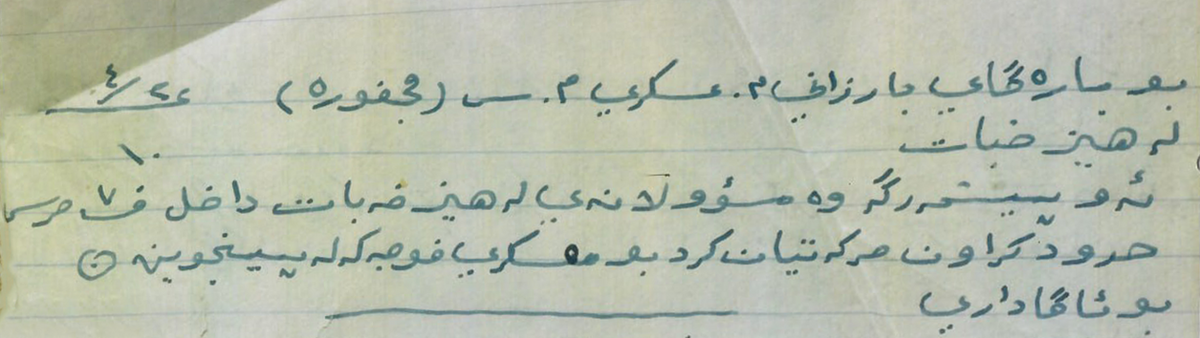 بو بارەگای بارزانی م. عسکری م. س (محفورە) ٤/٢٤
لە هیز خبات
١٠
ئەو پیشمەرگە وە مسؤولانەی لە هیز خەبات داخل ف ٧ حرس
حدود کراون حرکەتیان کرد بو عسکری فوجەکە لە پینجوین
بو ئاگاداری